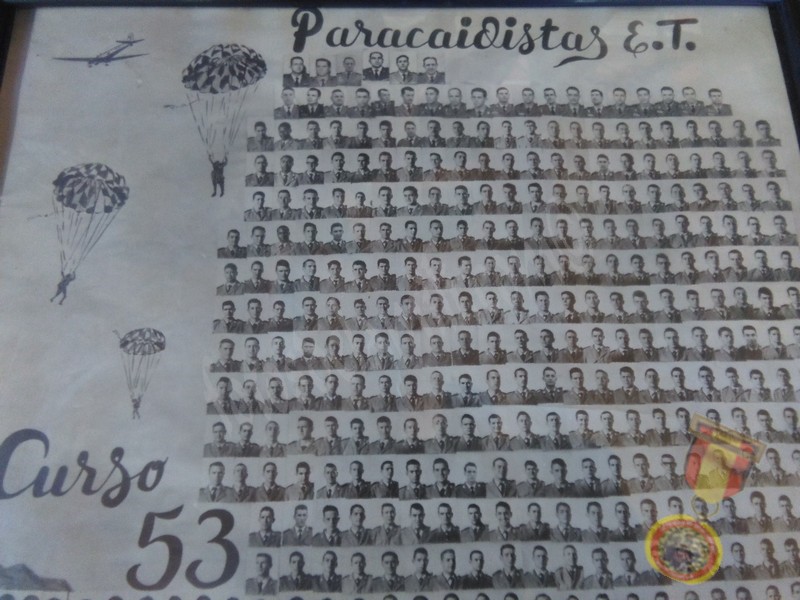 Paracaidistas E.T.
Curso
53